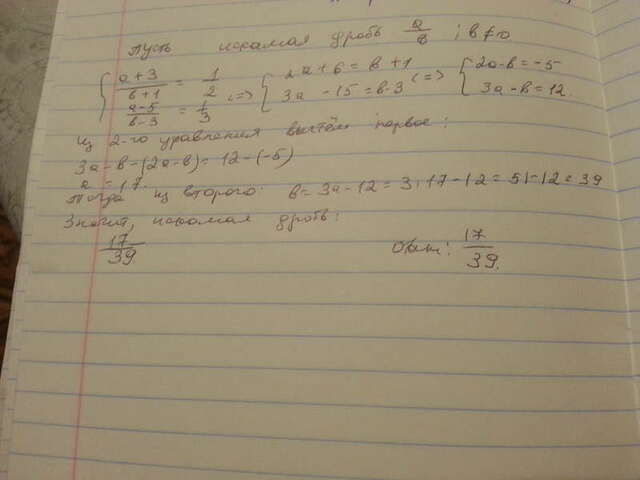 Пусть искомая дробь a/в ; в≠0
{ (a+3)/(в+1) = 1/2 ; (a-5)/(в-3) = 1/3 <=> { 2a+6 = в+1 ; 3a-15 = в-3 <=> { 2a-в=-5 ; 3a-в=12.
Из 2-го уравнения вычтем первое:
3a-в-(2a-в)= 12-(-5)
a = 17.
Тогда из второго: в= 3a-12= 3·17-12= 51-12= 39
Значит, искомая дробь:
17/39 Ответ: 17/39.